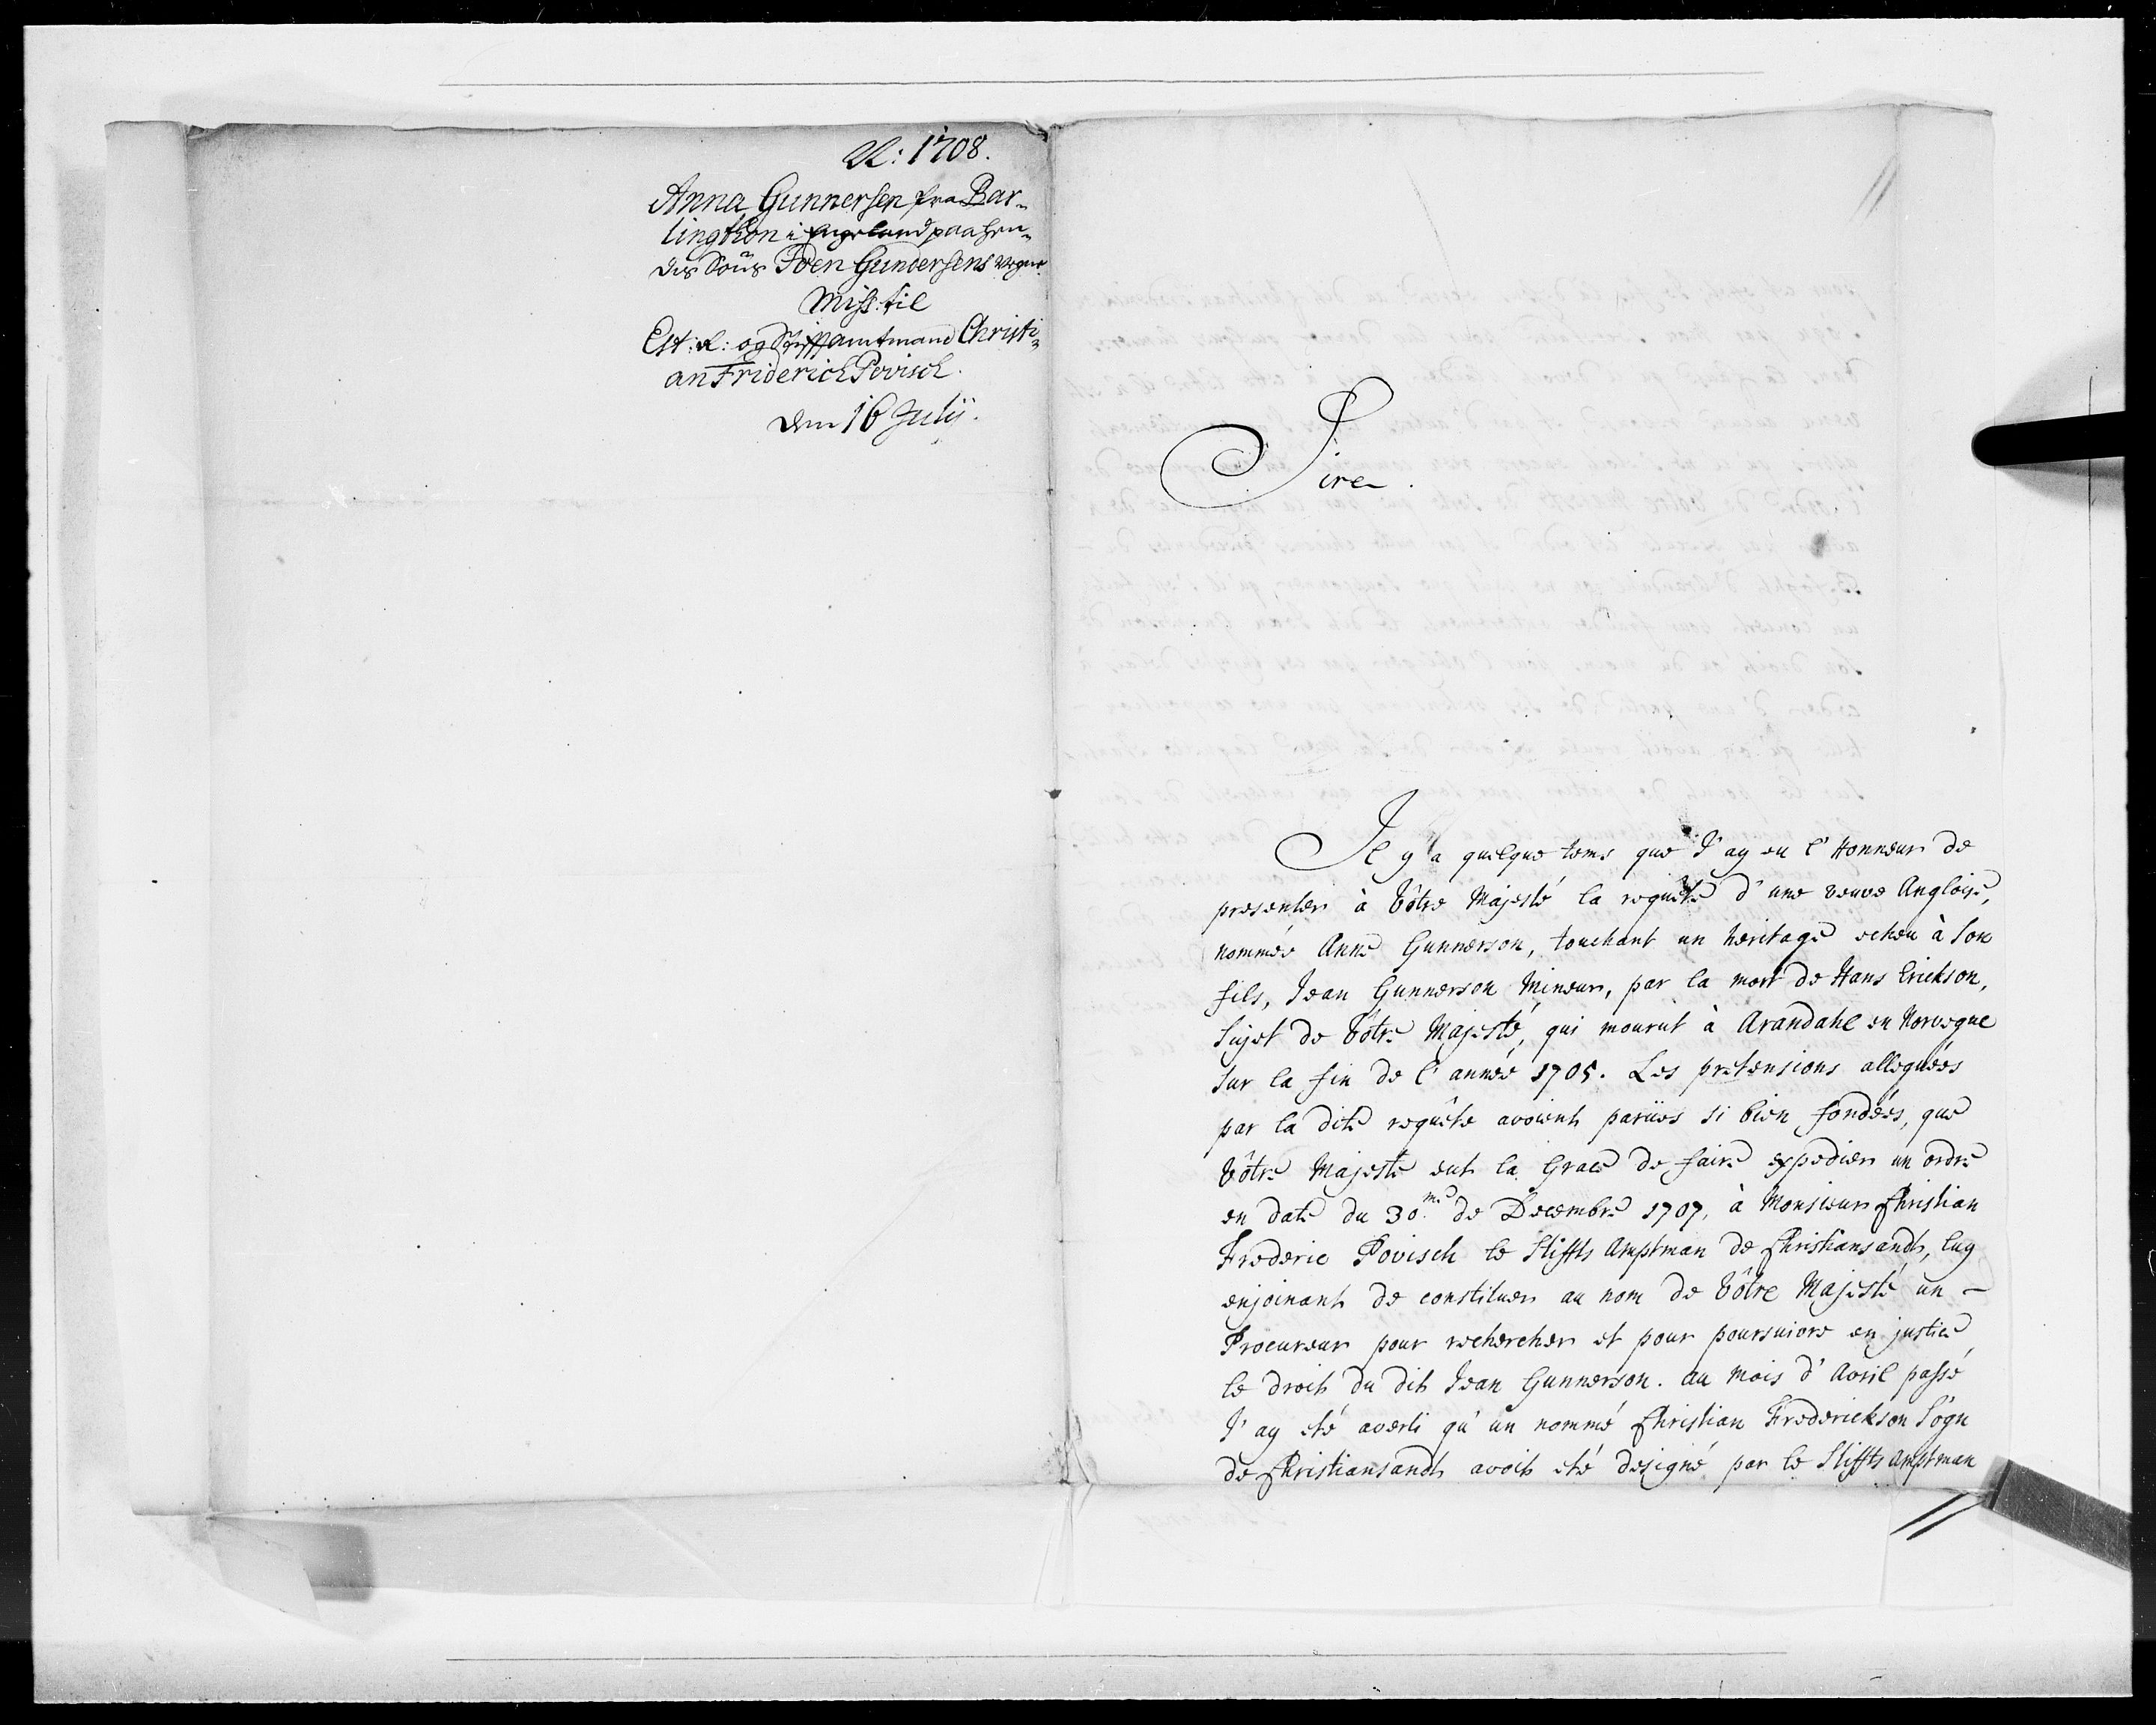 A: 1708.
Anna Gunnersen fra Bar-
lingthon i Engeland paa hen-
des Søns Joen Gundersens vegne.
Miss: til
Est: R: og Stiftamtmand Christi-
an Friderich Povisch.
den 16 Julij.
Sire.
Il y a quelque tems que J'ay eu l'Honneur de
presenter à Vôtre Majesté la requête d'une veuve Angloise,
nommée Anne Gunnerson, touchant un heritage echeu à son
fils, Jean Gunnerson Mineur, par la mort de Hans Erickson,
Sujet de Vôtre Majesté, qui mourut à Arandahl en Norvegue
sur la fin de l'année 1705. Les pretensions alleguées
par la dite requête avoient parües si bien fondées, que
Vôtre Majesté eut la Grace de faire expedier un ordre
en date du 30.me de Decembre 1707, à Monsieur Christian
Frederic Povisch le Stiffts Amptman de Christiansandt, luy
enjoinant de constituer au nom de Vôtre Majesté un
Procureur pour rechercher et pour poursuivre en justice
le droit du dit Jean Gunnerson. Au mois d'Avril passé
J'ay eté averti qu'un nommé Christian Frederickson Sögn
de Christiansandt avoit eté designé par le Stiffts Amptman